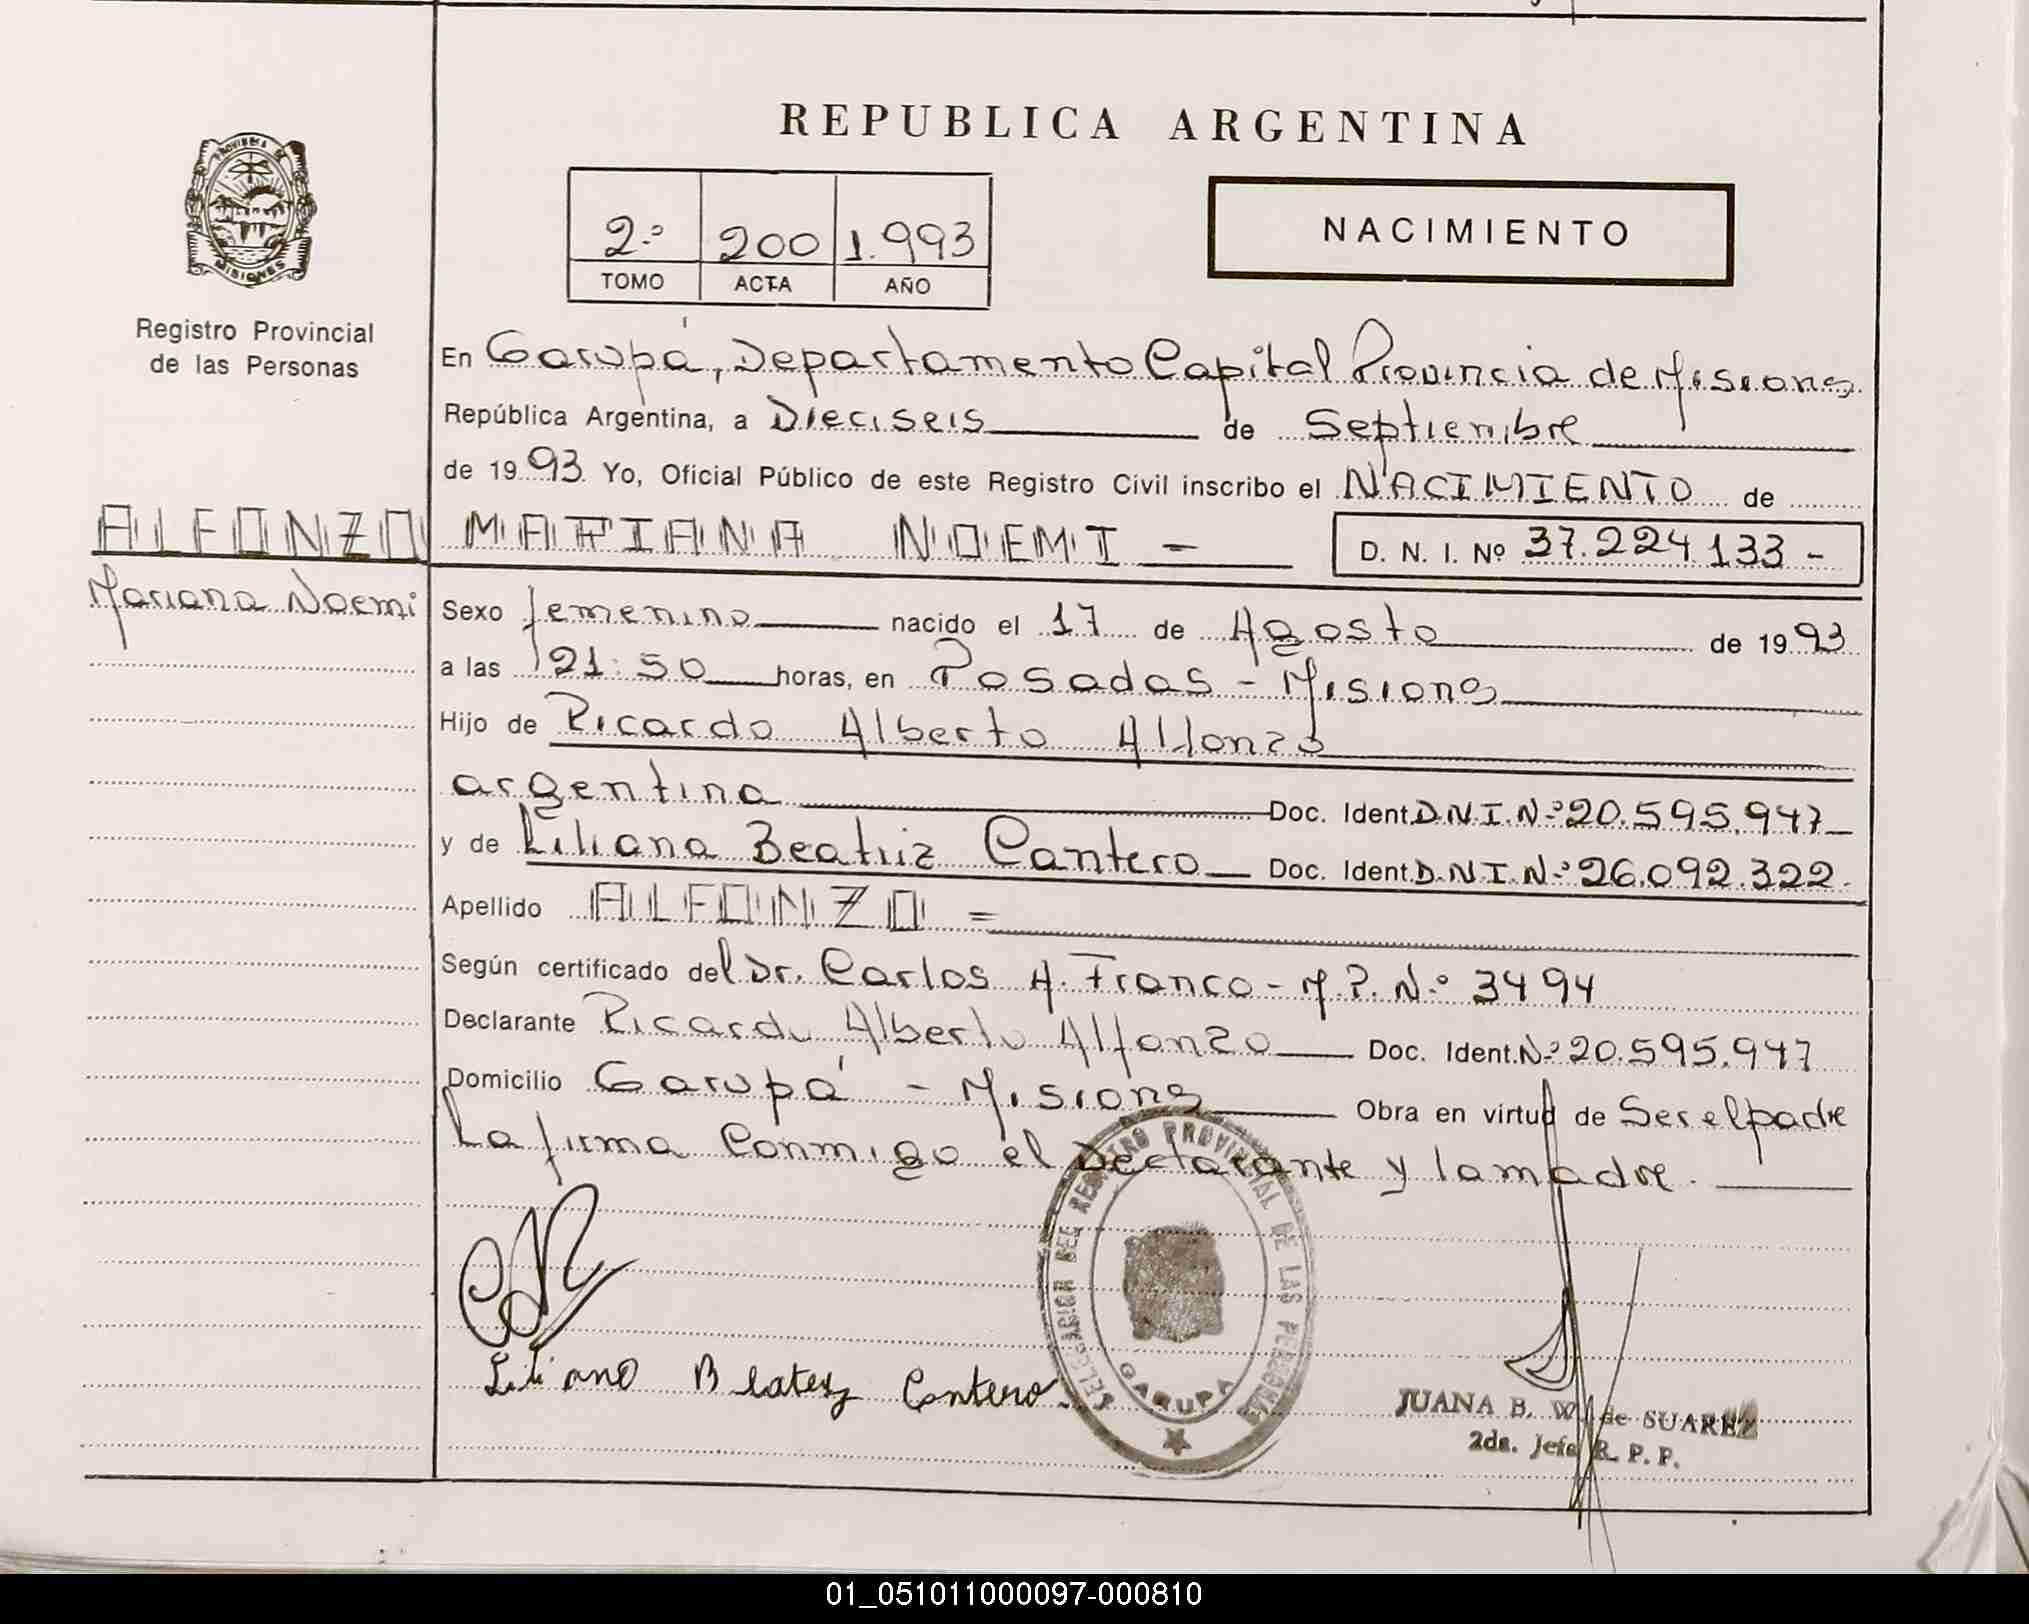 REPUBLICA ARGENTINA
PROVINCIA DE
MISIONES
Registro Provincial
de las Personas
2.º 200 1.993
TOMO ACTA AÑO
NACIMIENTO
En Garupá, Departamento Capital Provincia de Misiones
República Argentina, a Dieciseis de Septiembre
de 1993 Yo, Oficial Público de este Registro Civil inscribo el NACIMIENTO de
ALFONZO MARIANA NOEMI -
D. N. I. Nº 37.224.133 -
Mariana Noemi
Sexo femenino nacido el 17 de Agosto de 1993
a las 21:50 horas, en Posadas - Misiones
Hijo de Ricardo Alberto Alfonzo
argentina Doc. Ident. D.N.I.N.º 20.595.947
y de Liliana Beatriz Cantero Doc. Ident. D.N.I.N.º 26.092.322.
Apellido ALFONZO =
Según certificado del Dr. Carlos A. Franco - M.P. N.º 3494
Declarante Ricardo Alberto Alfonzo Doc. Ident. N.º 20.595.947
Domicilio Garupá - Misiones Obra en virtud de Ser el padre
La firma Conmigo el Declarante y la madre.
DELEGACION DEL REGISTRO PROVINCIAL DE LAS PERSONAS
GARUPA
Liliana Beatriz Cantero
JUANA B. W. de SUAREZ
2da. Jefa R. P. P.
01_051011000097-000810